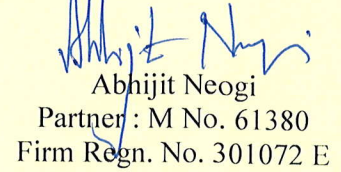 Abhijit Neogi
Abhijit Neogi
Partner : M No. 61380
Firm Regn. No. 301072 E